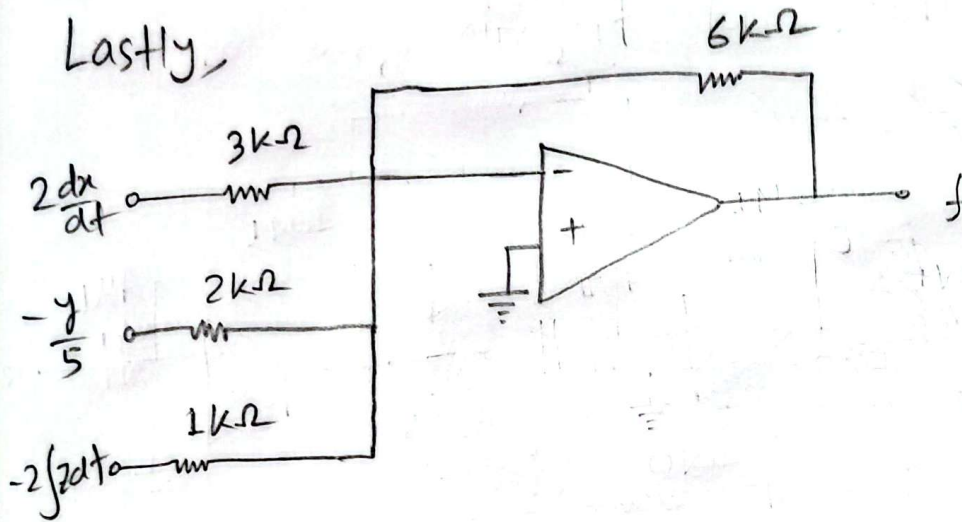 Lastly,
6KΩ
3KΩ
2 dx/dt
-
+
f
2KΩ
-y/5
1KΩ
-2∫zdt